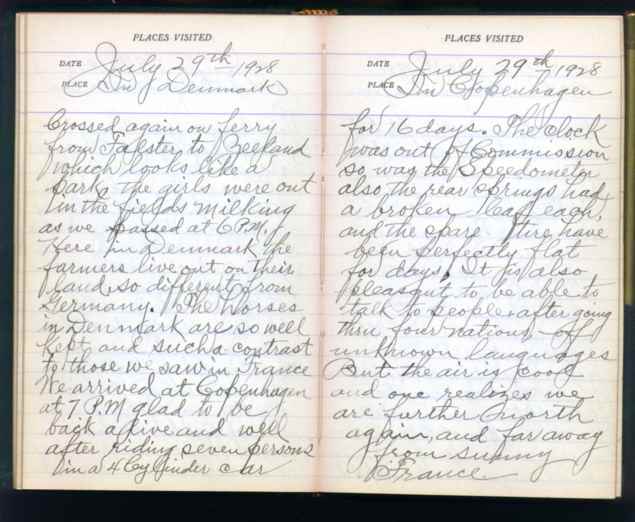 PLACES VISITED
DATE July 29th 1928
PLACE In Denmark
Crossed again on ferry
from Falster to Seeland
which looks like a
park, the girls were out
in the fields milking
as we passed at 6 P.M.
Here in Denmark the
farmers live out on their
land so different from
Germany. The horses
in Denmark are so well
kept and such a contrast
to those we saw in France
We arrived at Copenhagen
at 7 P.M glad to be
back alive and well
after riding seven persons
in a 4 Cylinder car
PLACES VISITED
DATE July 29th 1928
PLACE In Copenhagen
for 16 days. The clock
was out of Commission
so was the Speedometer
also the rear springs had
a broken leaf each,
and the spare tire have
been perfectly flat
for days. It is also
pleasant to be able to
talk to people after going
thru four nations of
unknown languages
But the air is cool
and one realizes we
are further North
again, and far away
from sunny
France